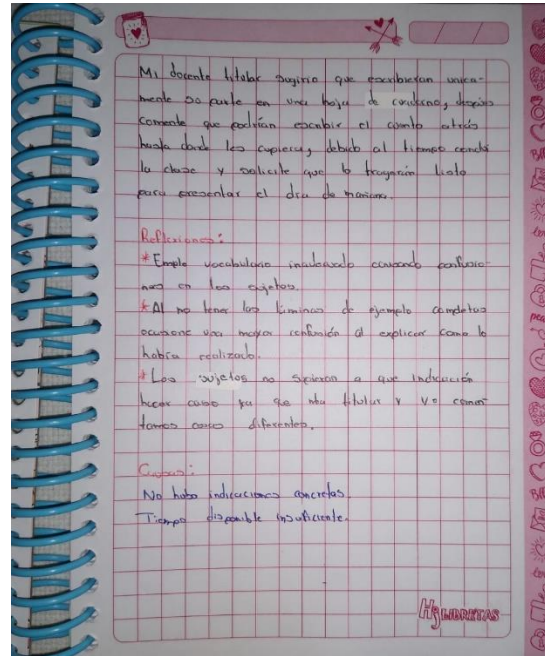 Mi docente titular sugirio que escribieran unica-
mente su parte en una hoja de cuaderno, despues
comente que podrian escribir el cuento atrás
hasta donde les cupiera, debido al tiempo conclui
la clase y solicite que lo trayeran listo
para presentar el dia de mañana.
Reflexiones:
* Emple vocabulario inadecuado causando confusio-
nes en los sujetos.
* Al no tener las laminas de ejemplo completas
ocasione una mayor confusión al explicar como lo
había realizado.
* Los sujetos no supieron a que indicación
hacer caso ya que mi titular y yo comen
tamos cosas diferentes.
Causas:
No hubo indicaciones concretas.
Tiempo disponible insuficiente.
HJ LIBRETAS